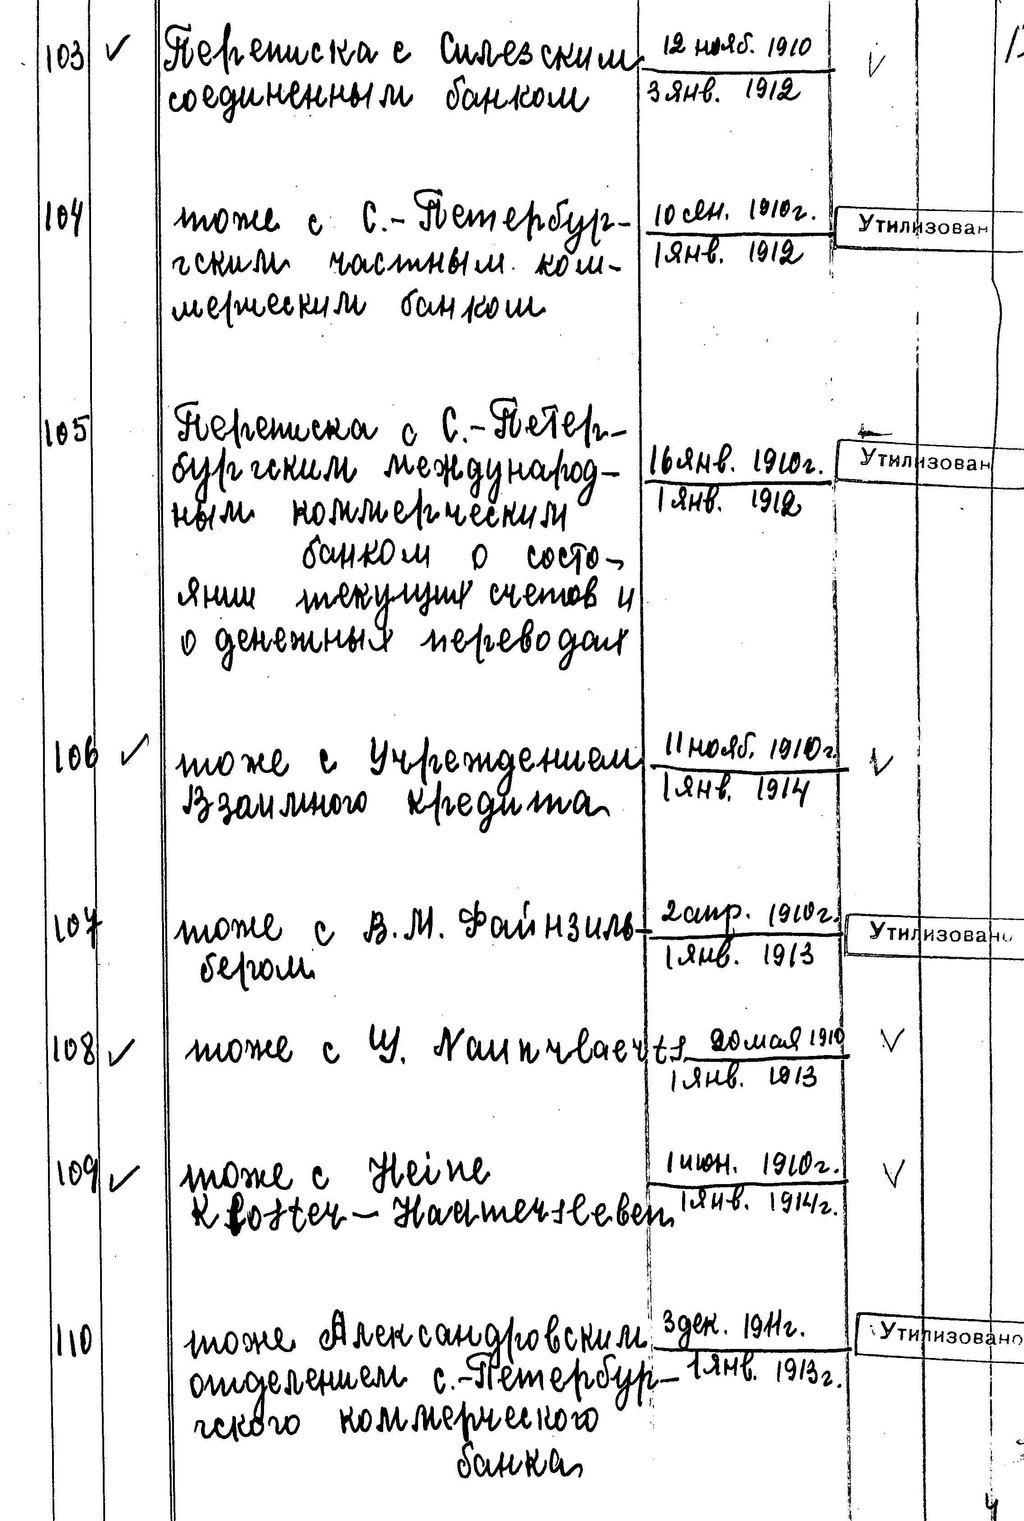 103 ✓ Переписка с Силезским 12 нояб. 1910 ✓
соединенным банком 3 янв. 1912
104 тоже с С.-Петербург- 10 сен. 1910г. Утилизован
гским частным ком- 1 янв. 1912
мерческим банком
105 Переписка с С.-Петер- 16 янв. 1910г. Утилизован
бургским международ- 1 янв. 1912
ным коммерческим
банком о состо-
янии текущих счетов и
о денежных переводах
106 ✓ тоже с Учреждением 11 нояб. 1910г. ✓
Взаимного кредита 1 янв. 1914
107 тоже с В.М. Файнзиль- 2 апр. 1910г. Утилизовано
бергом 1 янв. 1913
108 ✓ тоже с 20 мая 1910 ✓
1 янв. 1913
109 ✓ тоже с Heine 1 июн. 1910г. ✓
Kloster-Hadmersleben 1 янв. 1914г.
110 тоже Александровским 3 дек. 1911г. Утилизовано
отделением с.-Петербур- 1 янв. 1913г.
гского коммерческого
банка